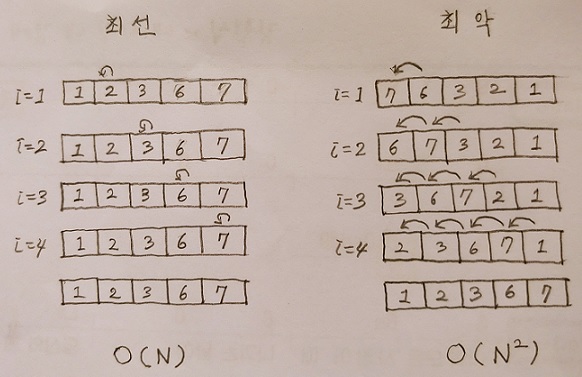 최선
i=1 1 2 3 6 7
i=2 1 2 3 6 7
i=3 1 2 3 6 7
i=4 1 2 3 6 7
1 2 3 6 7
O(N)
최악
i=1 7 6 3 2 1
i=2 6 7 3 2 1
i=3 3 6 7 2 1
i=4 2 3 6 7 1
1 2 3 6 7
O(N²)